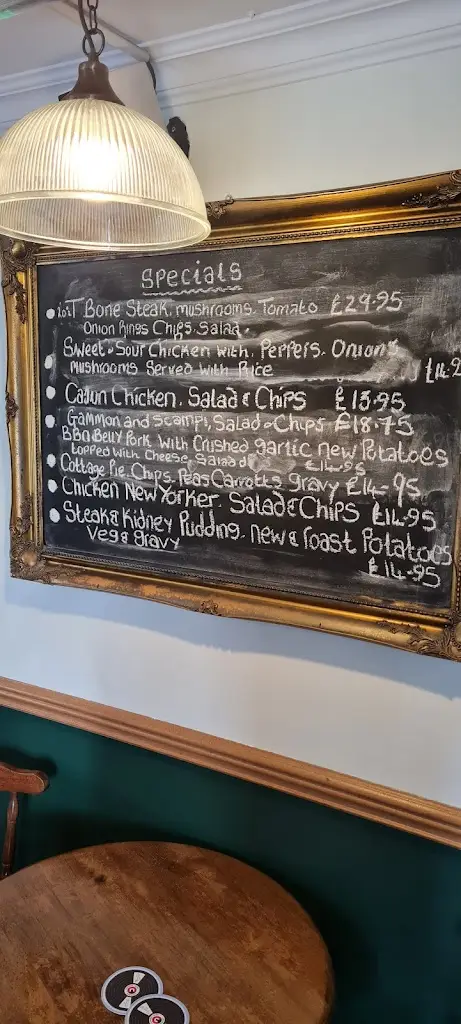 Specials
10oz T Bone Steak. mushrooms. Tomato £29.95
Onion Rings Chips. Salad.
Sweet & Sour Chicken with. Peppers. Onions
mushrooms Served with Rice £14.9
Cajun Chicken. Salad & Chips £13.95
Gammon and Scampi, Salad & Chips £18.75
BBQ Belly Pork with Crushed garlic new Potatoes
topped with Cheese. Salad £14.95
Cottage Pie. Chips. Peas Carrotts gravy £14-95
Chicken New Yorker. Salad & Chips £14-95
Steak & Kidney Pudding. new & roast Potatoes
Veg & gravy
£14-95